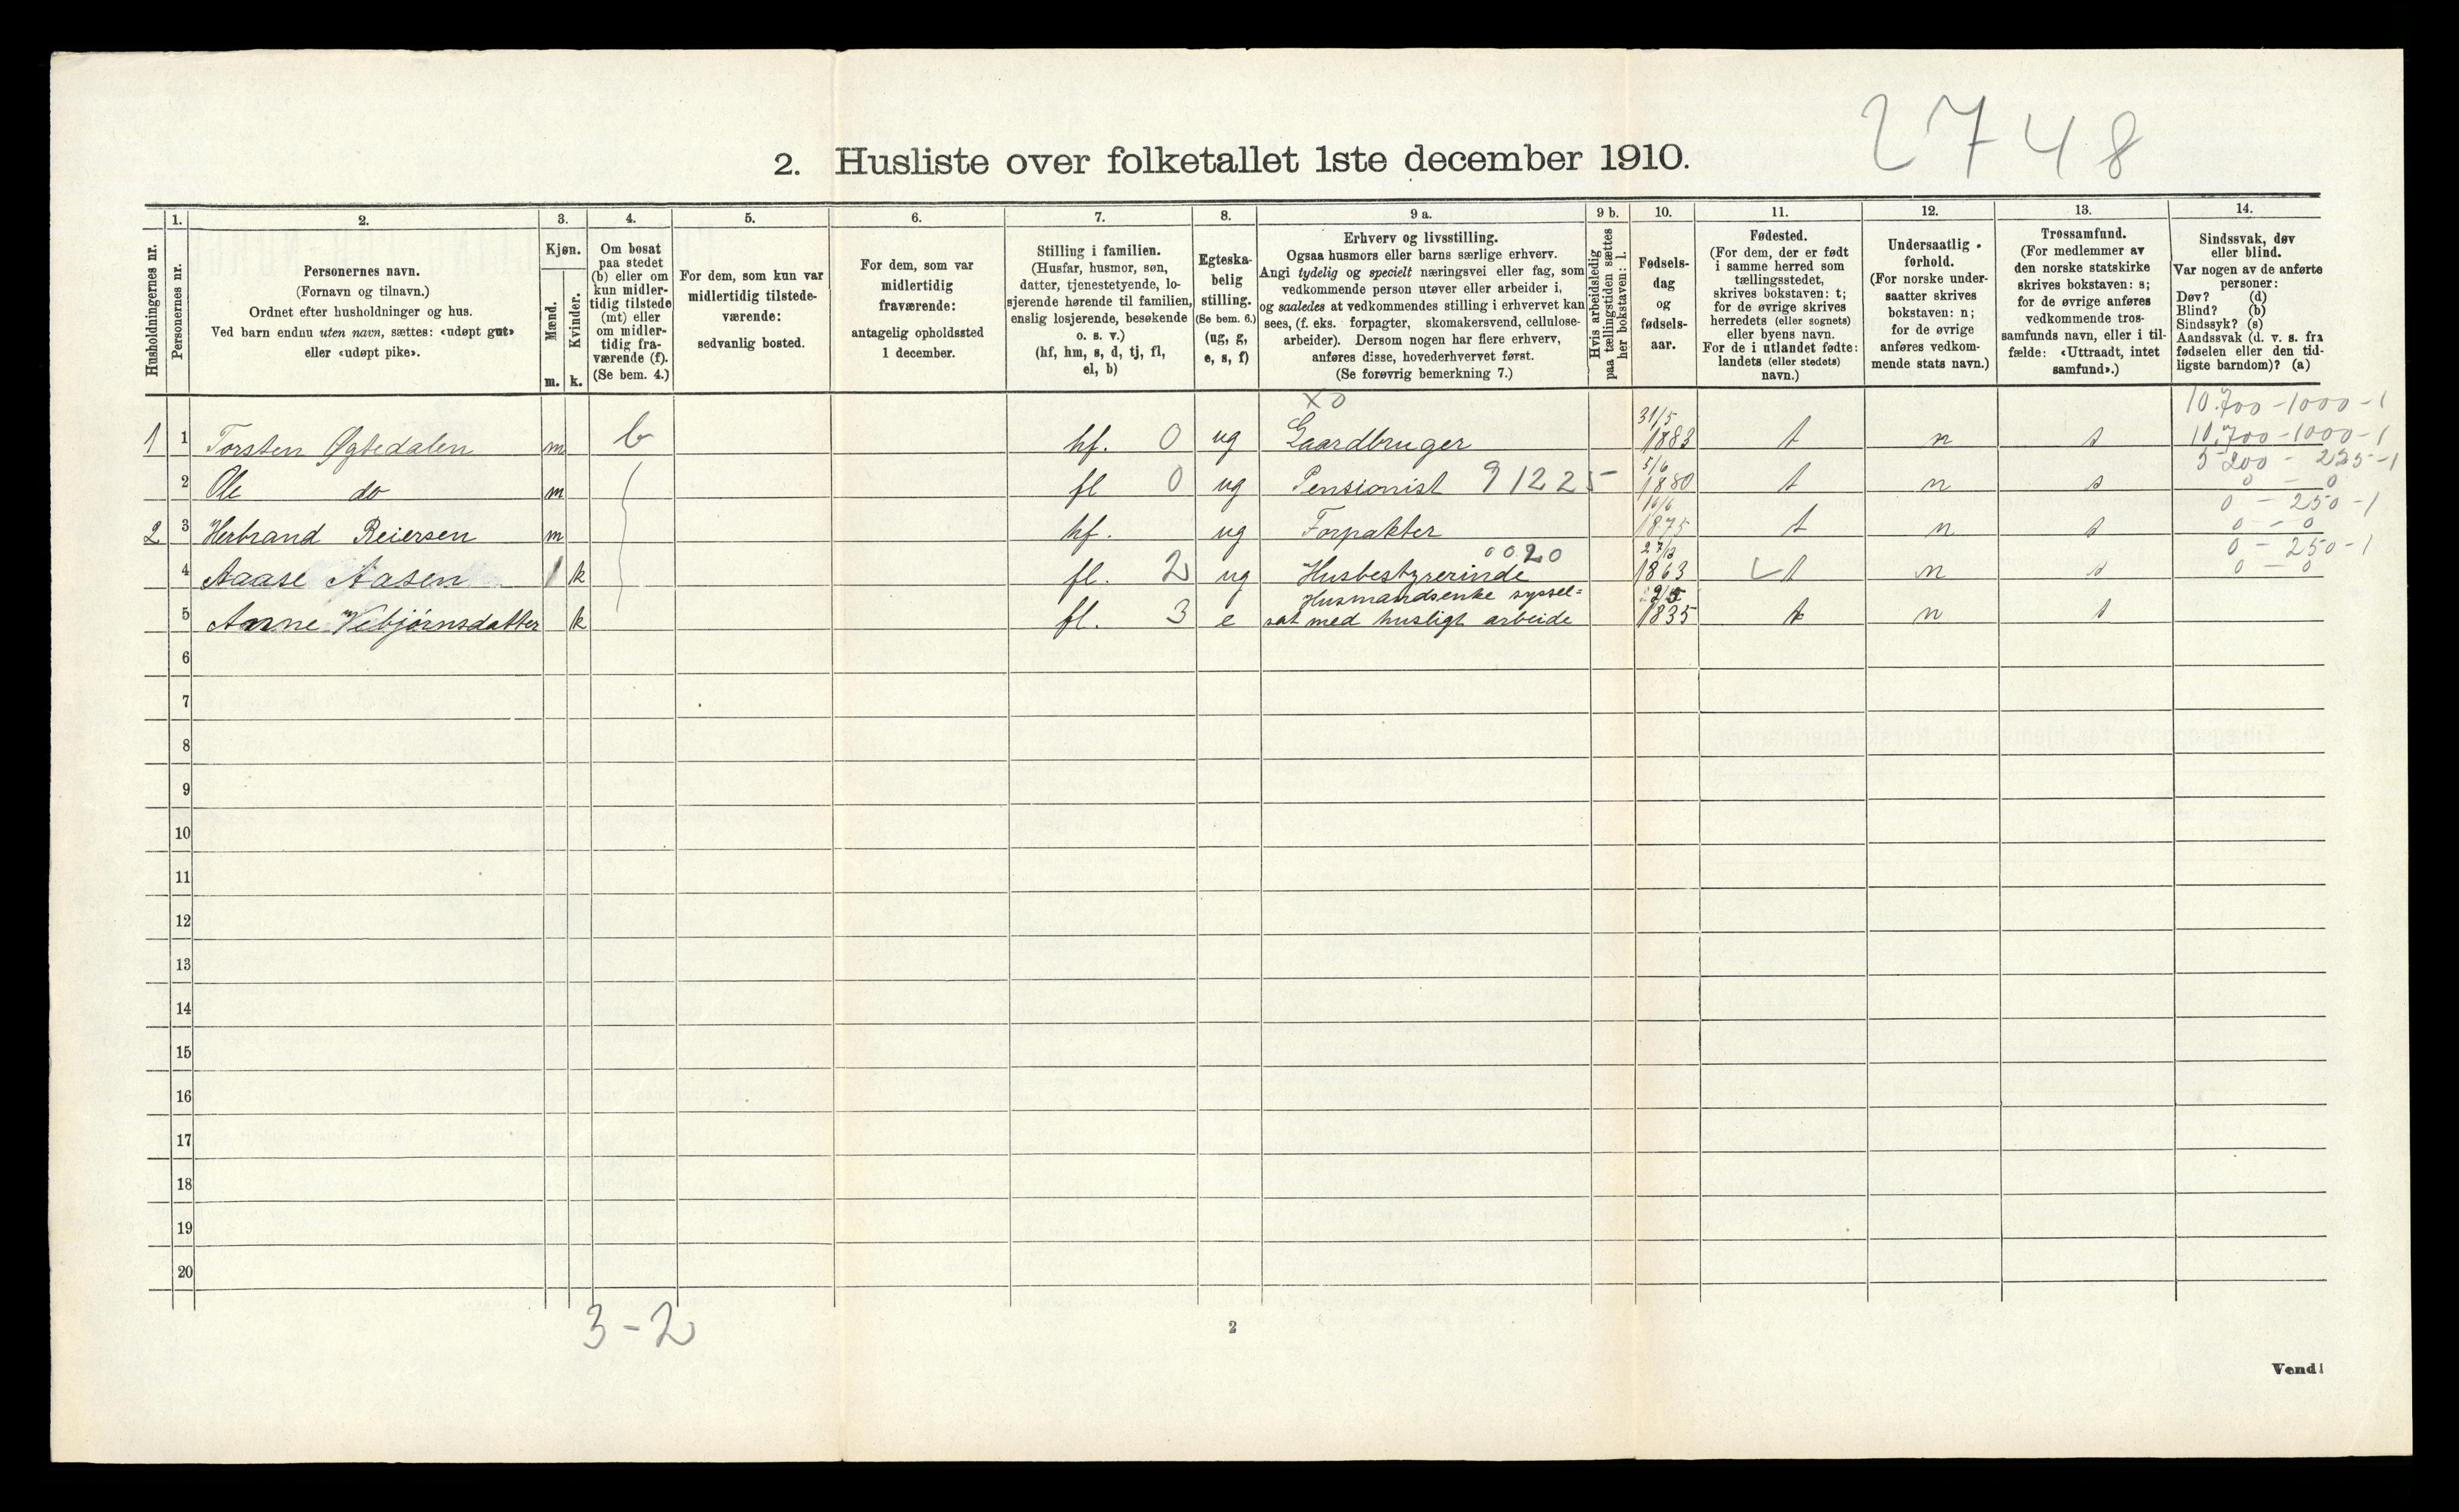 2748
2. Husliste over folketallet 1ste december 1910.
Husholdningernes nr.
1.
Personernes nr.
2.
Personernes navn.
(Fornavn og tilnavn.)
Ordnet efter husholdninger og hus.
Ved barn endnu uten navn, sættes: «udøpt gut»
eller «udøpt pike».
3.
Kjøn.
Mænd.
Kvinder.
m. k.
4.
Om bosat
paa stedet
(b) eller om
kun midler-
tidig tilstede
(mt) eller
om midler-
tidig fra-
værende (f).
(Se bem. 4.)
5.
For dem, som kun var
midlertidig tilstede-
værende:
sedvanlig bosted.
6.
For dem, som var
midlertidig
fraværende:
antagelig opholdssted
1 december.
7.
Stilling i familien.
(Husfar, husmor, søn,
datter, tjenestetyende, lo-
sjerende hørende til familien,
enslig losjerende, besøkende
o. s. v.)
(hf, hm, s, d, tj, fl,
el, b)
8.
Egteska-
belig
stilling.
(Se bem. 6.)
(ug, g,
e, s, f)
9 a.
Erhverv og livsstilling.
Ogsaa husmors eller barns særlige erhverv.
Angi tydelig og specielt næringsvei eller fag, som
vedkommende person utøver eller arbeider i,
og saaledes at vedkommendes stilling i erhvervet kan
sees, (f. eks. forpagter, skomakersvend, cellulose-
arbeider). Dersom nogen har flere erhverv,
anføres disse, hovederhvervet først.
(Se forøvrig bemerkning 7.)
9 b.
Hvis arbeidsledig
paa tællingstiden sættes
her bokstaven: l.
10.
Fødsels-
dag
og
fødsels-
aar.
11.
Fødested.
(For dem, der er født
i samme herred som
tællingsstedet,
skrives bokstaven: t;
for de øvrige skrives
herredets (eller sognets)
eller byens navn.
For de i utlandet fødte:
landets (eller stedets)
navn.)
12.
Undersaatlig
forhold.
(For norske under-
saatter skrives
bokstaven: n;
for de øvrige
anføres vedkom-
mende stats navn.)
13.
Trossamfund.
(For medlemmer av
den norske statskirke
skrives bokstaven: s;
for de øvrige anføres
vedkommende tros-
samfunds navn, eller i til-
fælde: «Uttraadt, intet
samfund».)
14.
Sindssvak, døv
eller blind.
Var nogen av de anførte
personer:
Døv? (d)
Blind? (b)
Sindssyk? (s)
Aandssvak (d. v. s. fra
fødselen eller den tid-
ligste barndom)? (a)
X0 31/5 10.700-1000-1
1 1 Torsten Øgtedalen m b hf. 0 ug Gaardbruger 1883 t n s 10.700-1000-1
5/6 5200 - 225-1
2 Ole do m fl 0 ug Pensionist 91225 1880 t n s 0 - 0
16/6 0 - 250-1
2 3 Herbrand Reiersen m hf. ug Forpakter 1875 t n s 0 - 0
0020 0 - 250-1
4 Aaase Aasen k fl. 2 ug Husbestyrerinde 1863 t n s 0 - 0
Husmandsenke syssel=
5 Anne Vebjørnsdatter k fl. 3 e sat med husligt arbeide 1835 t n s
6
7
8
9
10
11
12
13
14
15
16
17
18
19
20
3-2
2
Vend!